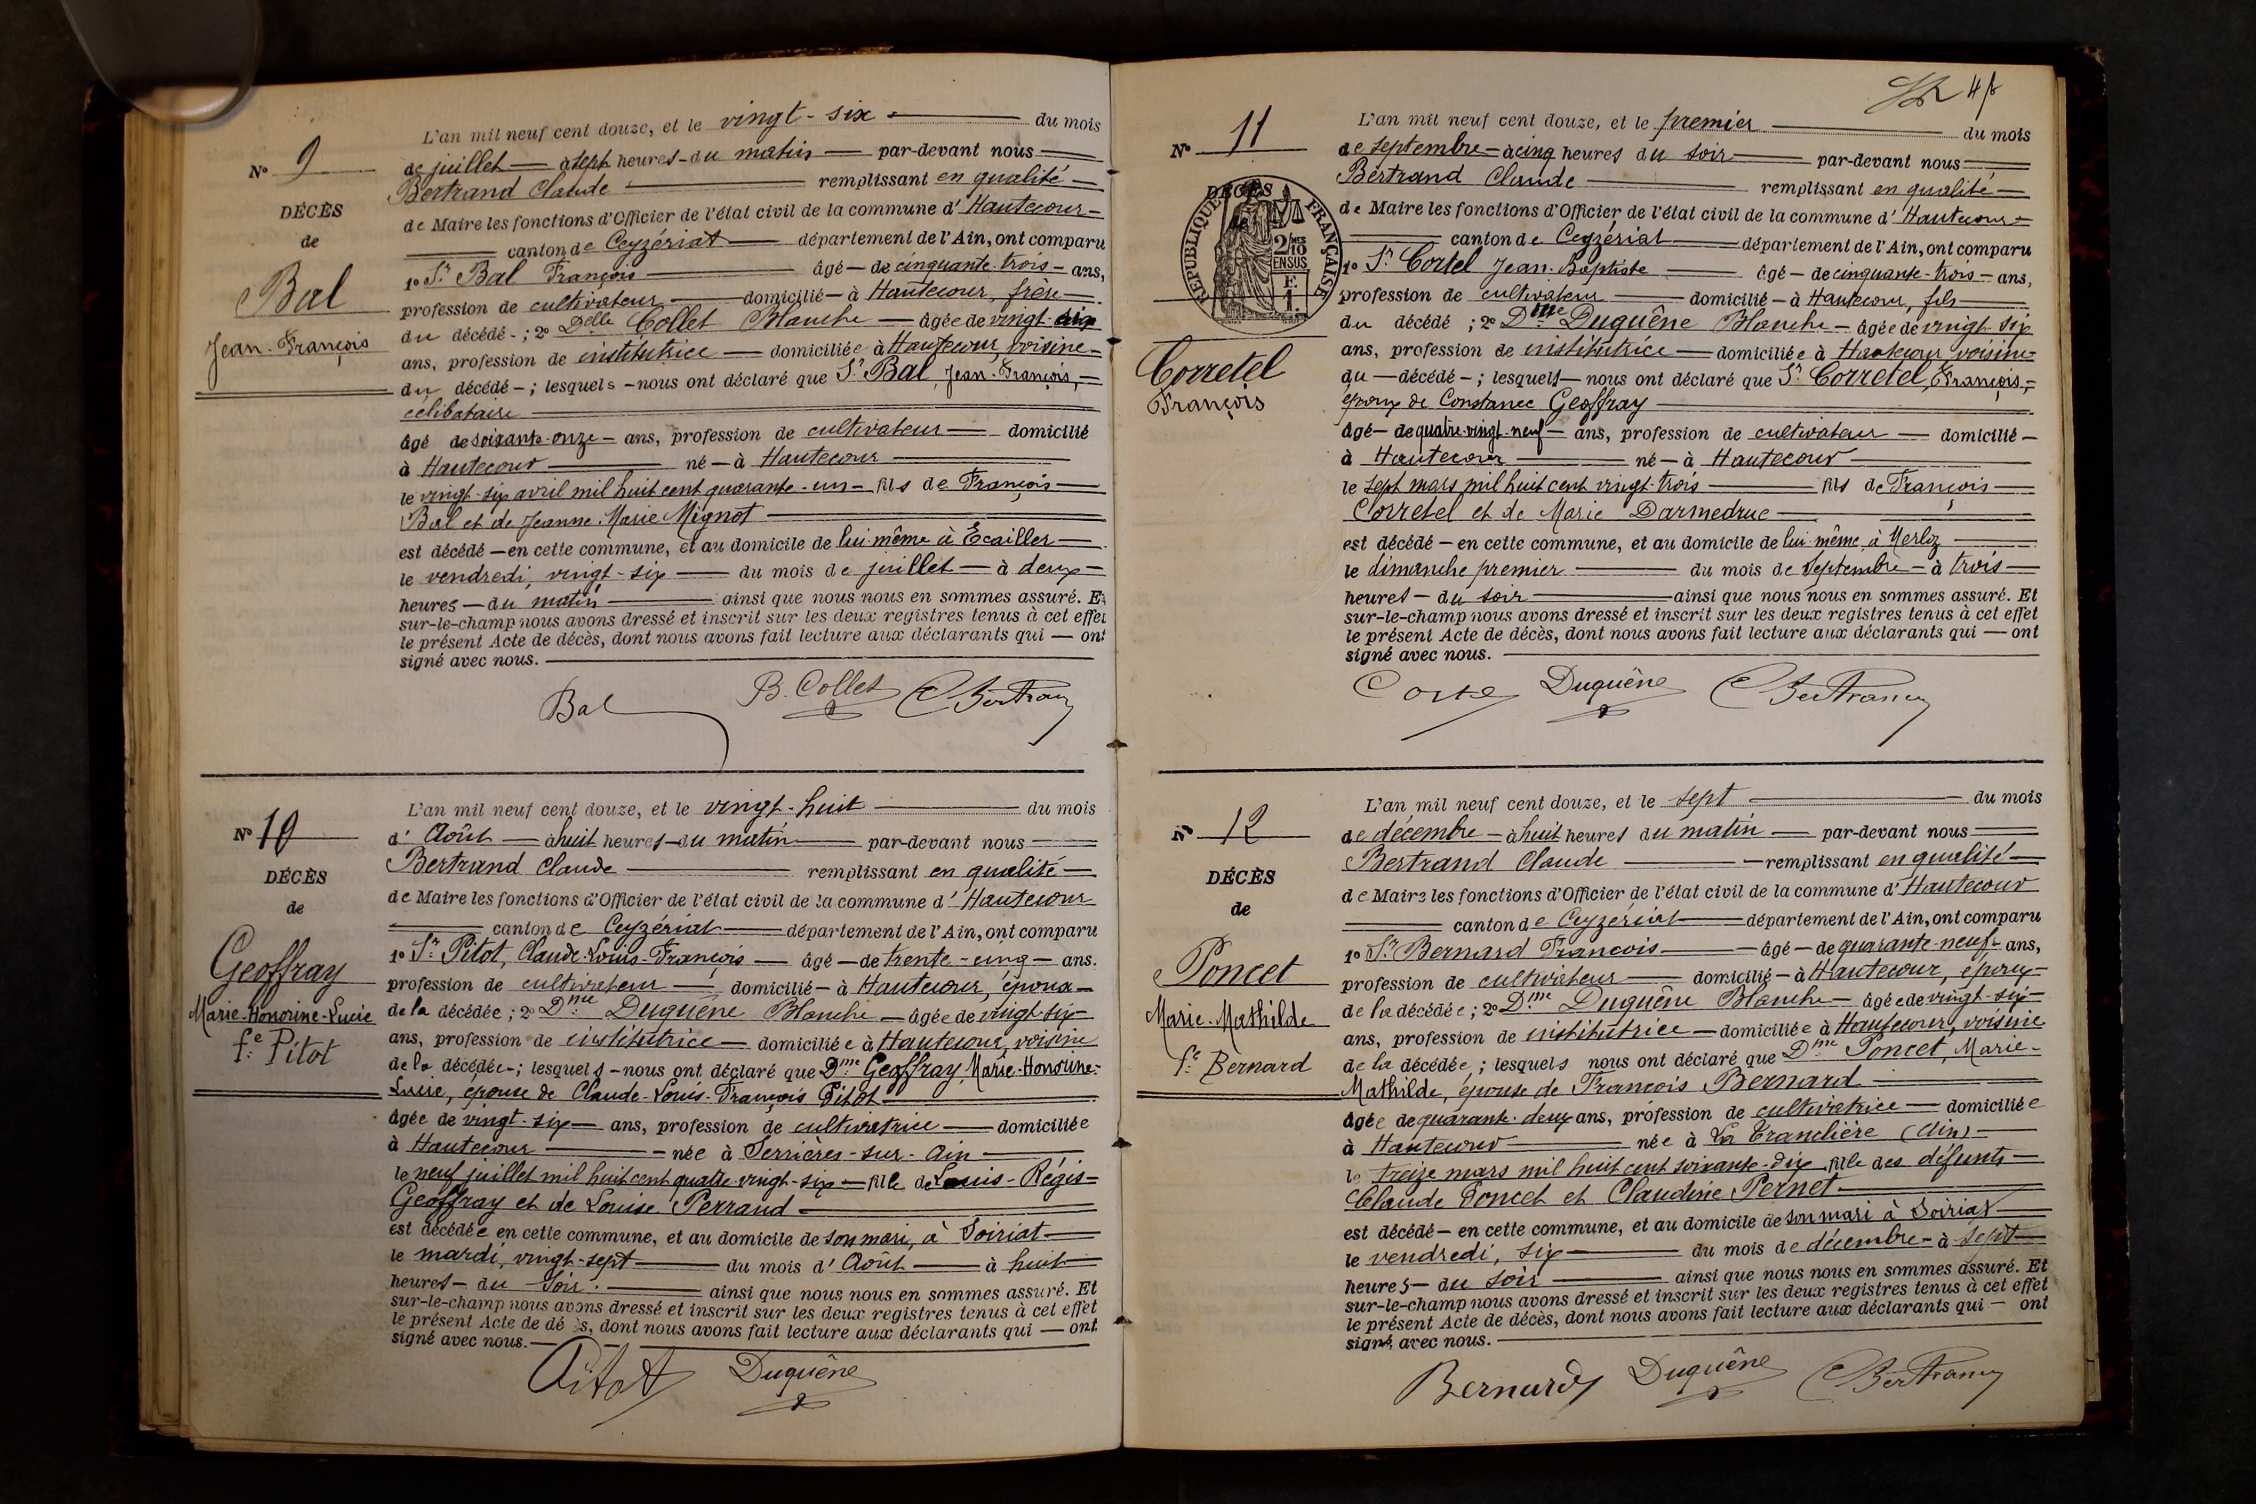 N° 9
DÉCÈS
de
Bal
Jean-François
L'an mil neuf cent douze, et le vingt-six du mois
de juillet à sept heures du matin par-devant nous
Bertrand Claude remplissant en qualité
de Maire les fonctions d'Officier de l'état civil de la commune d'Hautecour
canton de Ceyzériat département de l'Ain, ont comparu
1° Sr Bal François âgé de cinquante-trois ans,
profession de cultivateur domicilié à Hautecour, frère
du décédé; 2° Delle Collet Blanche âgée de vingt-six
ans, profession de institutrice domiciliée à Hautecour, voisine
du décédé; lesquels nous ont déclaré que Sr Bal, Jean-François,
célibataire
âgé de soixante-onze ans, profession de cultivateur domicilié
à Hautecour né à Hautecour
le vingt-six avril mil huit cent quarante-un fils de François
Bal et de Jeanne Marie Mignot
est décédé en cette commune, et au domicile de lui-même à Ecailler
le vendredi, vingt-six du mois de juillet à deux
heures du matin ainsi que nous nous en sommes assuré. Et
sur-le-champ nous avons dressé et inscrit sur les deux registres tenus à cet effet
le présent Acte de décès, dont nous avons fait lecture aux déclarants qui ont
signé avec nous.
Bal B. Collet C Bertrand
N° 10
DÉCÈS
de
Geoffray
Marie-Honorine-Lucie
fe Pitot
L'an mil neuf cent douze, et le vingt-huit du mois
d'Août à huit heures du matin par-devant nous
Bertrand Claude remplissant en qualité
de Maire les fonctions d'Officier de l'état civil de la commune d'Hautecour
canton de Ceyzériat département de l'Ain, ont comparu
1° Sr Pitot, Claude-Louis-François âgé de trente-cinq ans.
profession de cultivateur domicilié à Hautecour, époux
de la décédée; 2° Dme Duquêne Blanche âgée de vingt-six
ans, profession de institutrice domiciliée à Hautecour, voisine
de la décédée; lesquels nous ont déclaré que Dme Geoffray, Marie-Honorine-
Lucie, épouse de Claude-Louis-François Pitot
âgée de vingt-six ans, profession de cultivatrice domiciliée
à Hautecour née à Serrières-sur-Ain
le neuf juillet mil huit cent quatre-vingt-six fille de Louis-Régis
Geoffray et de Louise Perraud
est décédée en cette commune, et au domicile de son mari, à Soiriat
le mardi, vingt-sept du mois d'Août à huit
heures du soir. ainsi que nous nous en sommes assuré. Et
sur-le-champ nous avons dressé et inscrit sur les deux registres tenus à cet effet
le présent Acte de décès, dont nous avons fait lecture aux déclarants qui ont
signé avec nous.
Pitot Duquêne
N° 11
DÉCÈS
de
RÉPUBLIQUE FRANÇAISE
2/10 EN SUS
F. 1.
Corretel
François
L'an mil neuf cent douze, et le premier du mois
de septembre à cinq heures du soir par-devant nous
Bertrand Claude remplissant en qualité
de Maire les fonctions d'Officier de l'état civil de la commune d'Hautecour
canton de Ceyzériat département de l'Ain, ont comparu
1° Sr Cortel Jean-Baptiste âgé de cinquante-trois ans,
profession de cultivateur domicilié à Hautecour, fils
du décédé; 2° Dme Duquêne Blanche âgée de vingt-six
ans, profession de institutrice domiciliée à Hautecour, voisine
du décédé; lesquels nous ont déclaré que Sr Corretel, François,
époux de Constance Geoffray
âgé de quatre-vingt-neuf ans, profession de cultivateur domicilié
à Hautecour né à Hautecour
le sept mars mil huit cent vingt-trois fils de François
Corretel et de Marie Darmedruc
est décédé en cette commune, et au domicile de lui-même, à Merloz
le dimanche premier du mois de septembre à trois
heures du soir ainsi que nous nous en sommes assuré. Et
sur-le-champ nous avons dressé et inscrit sur les deux registres tenus à cet effet
le présent Acte de décès, dont nous avons fait lecture aux déclarants qui ont
signé avec nous.
Duquêne C Bertrand
N° 12
DÉCÈS
de
Poncet
Marie-Mathilde
fe Bernard
L'an mil neuf cent douze, et le sept du mois
de décembre à huit heures du matin par-devant nous
Bertrand Claude remplissant en qualité
de Maire les fonctions d'Officier de l'état civil de la commune d'Hautecour
canton de Ceyzériat département de l'Ain, ont comparu
1° Sr Bernard François âgé de quarante-neuf ans,
profession de cultivateur domicilié à Hautecour, époux
de la décédée; 2° Dme Duquêne Blanche âgée de vingt-six
ans, profession de institutrice domiciliée à Hautecour, voisine
de la décédée; lesquels nous ont déclaré que Dme Poncet, Marie-
Mathilde, épouse de François Bernard
âgée de quarante-deux ans, profession de cultivatrice domiciliée
à Hautecour née à La Tranclière (Ain)
le treize mars mil huit cent soixante-dix fille des défunts
Claude Poncet et Claudine Pernet
est décédé en cette commune, et au domicile de son mari à Soiriat
le vendredi, six du mois de décembre à sept
heures du soir ainsi que nous nous en sommes assuré. Et
sur-le-champ nous avons dressé et inscrit sur les deux registres tenus à cet effet
le présent Acte de décès, dont nous avons fait lecture aux déclarants qui ont
signé avec nous.
Bernard Duquêne C Bertrand